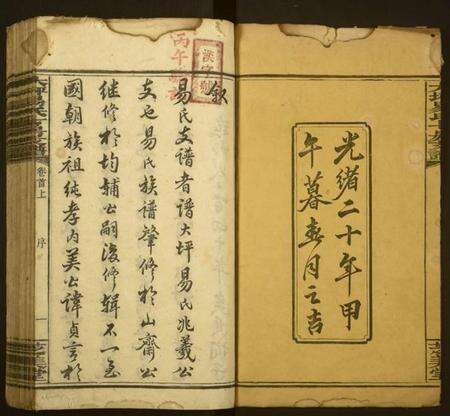 光緒二十年甲
午暮春月之吉
叙
易氏支譜者譜大坪易氏兆羲公
支也易氏族譜肇修於山齋公
継修於均輔公嗣後修輯不一笔
國朝族祖純孝內美公諱貞言於
卷首上
序
一
丙午